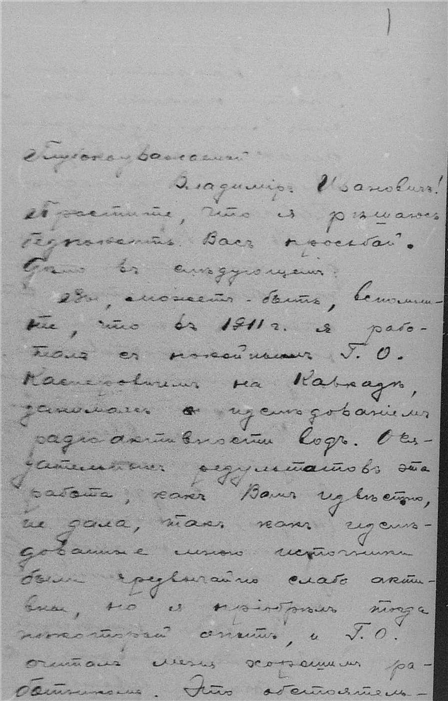 Глубокоуважаемый
Владиміръ Ивановичъ!
Простите, что я рѣшаюсь
безпокоить Васъ просьбой.
Дѣло въ слѣдующемъ.
Вы, можетъ-быть, вспомни-
те, что въ 1911 г. я рабо-
талъ съ покойнымъ Г. О.
Касперовичемъ на Кавказѣ,
занимаясь изслѣдованіемъ
радіоактивности водъ. Ося-
зательныхъ результатовъ эта
работа, какъ Вамъ извѣстно,
не дала, такъ какъ изслѣ-
дованные мною источники
были чрезвычайно слабо акти-
вны, но я пріобрѣлъ тогда
нѣкоторый опытъ, и Г. О.
считалъ меня хорошимъ ра-
ботникомъ. Это обстоятель-